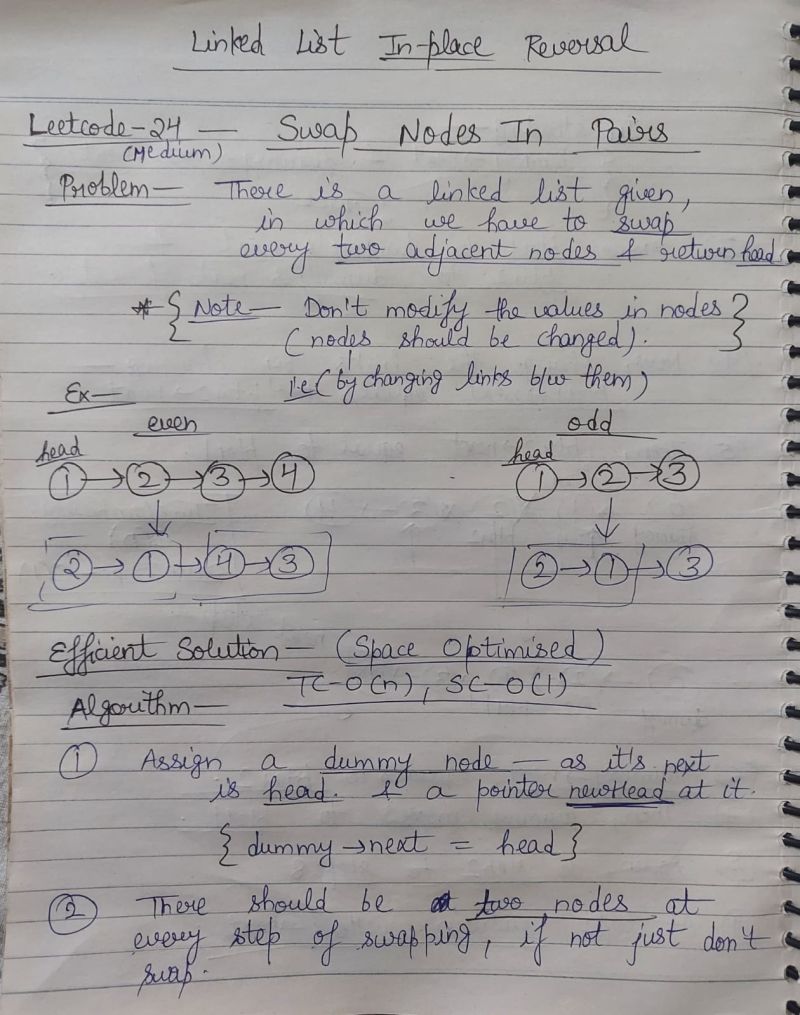 Linked List In-place Reversal
Leetcode-24 — Swap Nodes In Pairs
(Medium)
Problem— There is a linked list given,
in which we have to swap
every two adjacent nodes & return head.
* { Note— Don't modify the values in nodes }
(nodes should be changed).
i.e (by changing links b/w them)
Ex—
even odd
head head
1 → 2 → 3 → 4 1 → 2 → 3
2 → 1 → 4 → 3 2 → 1 → 3
Efficient Solution— (Space Optimised)
TC-O(n), SC-O(1)
Algorithm—
1 Assign a dummy node — as it's next
is head. & a pointer newHead at it.
{ dummy → next = head }
2 There should be two nodes at
every step of swapping, if not just don't
swap.